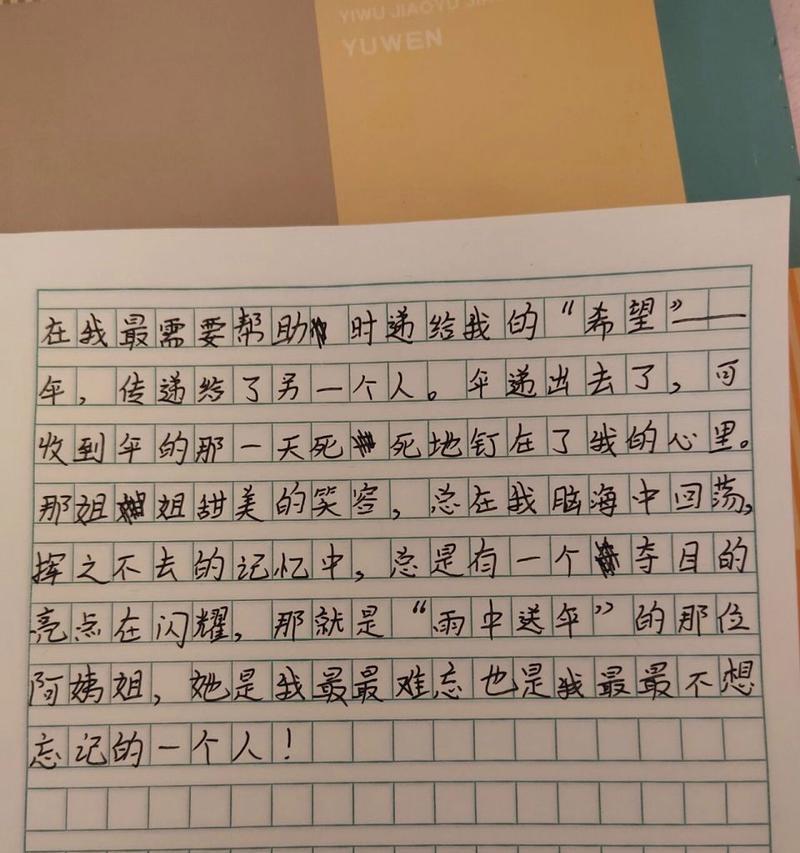 YIWU JIAOYU JIA
YUWEN
在我最需要帮助时递给我的“希望”——
伞，传递给了另一个人。伞递出去了，可
收到伞的那一天死死地钉在了我的心里。
那姐姐甜美的笑容，总在我脑海中回荡，
挥之不去的记忆中，总是有一个夺目的
亮点在闪耀，那就是“雨中送伞”的那位
阿姨姐，她是我最最难忘也是我最最不想
忘记的一个人！